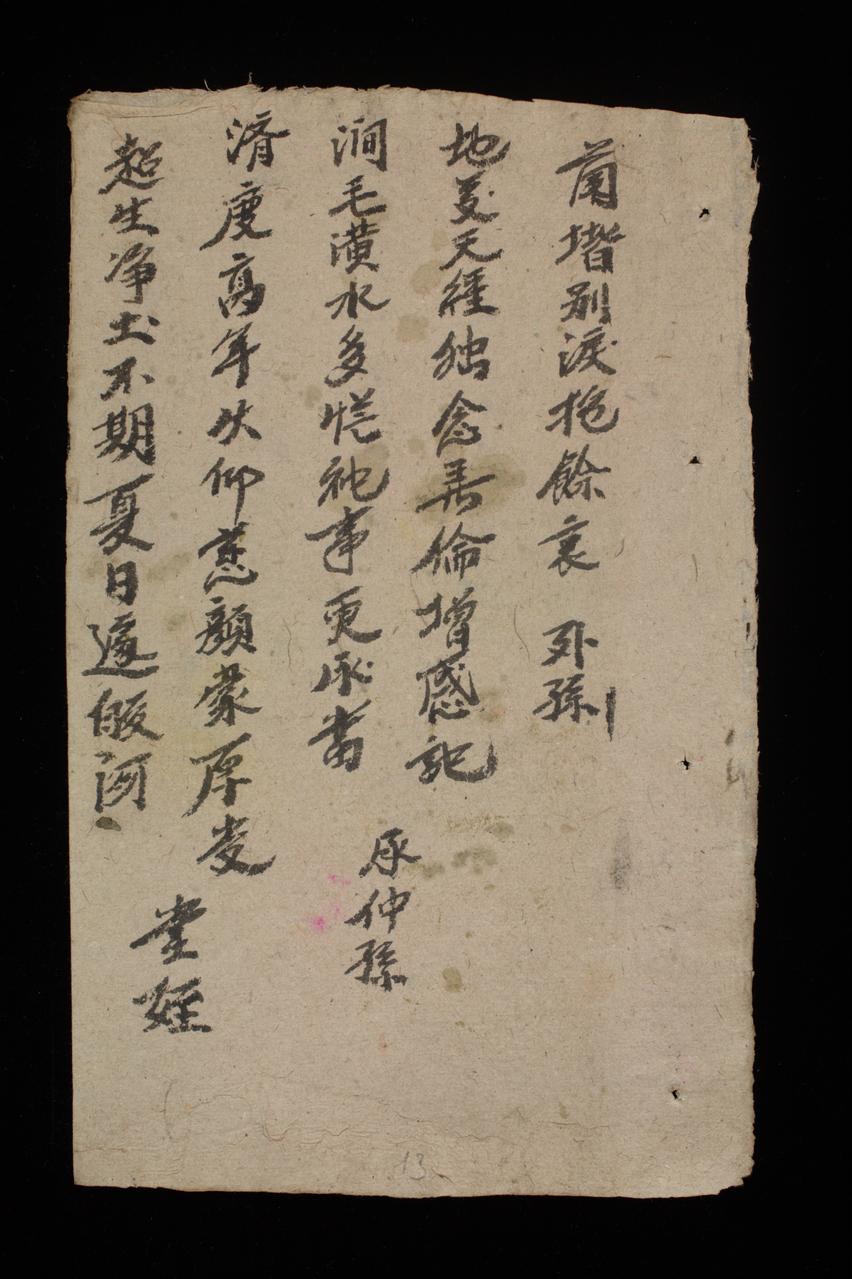 蘭堦别淚抱餘哀 外孫
地义天經独念彝倫增感記
澗毛潢水多慌祀事更承當
承仲孫
済度高年伏仰慈顏蒙厚爱
超生净土不期夏日遽假河
堂姪
13